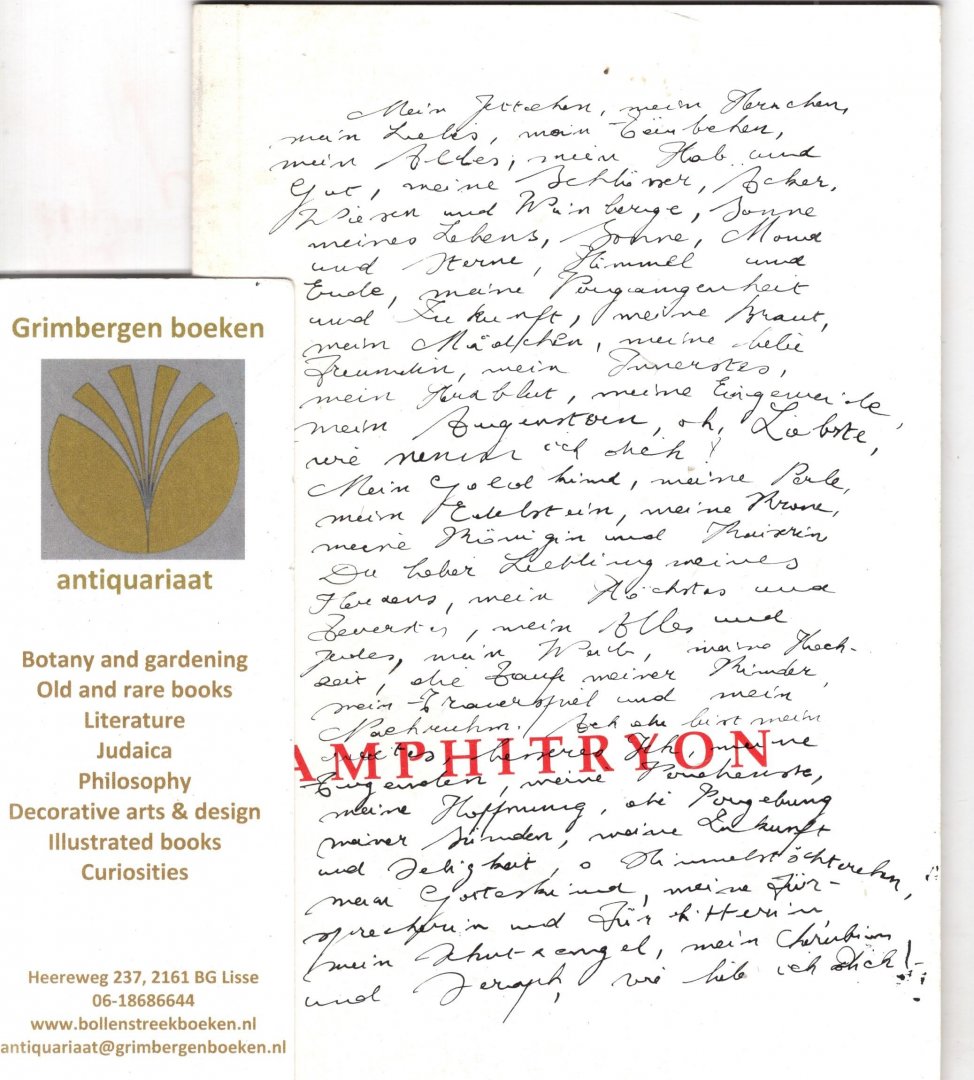 Grimbergen boeken
antiquariaat
Botany and gardening
Old and rare books
Literature
Judaica
Philosophy
Decorative arts & design
Illustrated books
Curiosities
Heereweg 237, 2161 BG Lisse
06-18686644
www.bollenstreekboeken.nl
antiquariaat@grimbergenboeken.nl
Mein Jettchen, mein Herzchen,
mein Liebes, mein Täubchen,
mein Alles, mein Hab und
Gut, meine Schlösser, Äcker,
Wiesen und Weinberge, Sonne
meines Lebens, Sonne, Mond
und Sterne, Himmel und
Erde, meine Vergangenheit
und Zukunft, meine Braut,
mein Mädchen, meine liebe
Freundin, mein Innerstes,
mein Herzblut, meine Eingeweide,
mein Augenstern, oh, Liebste,
wie nenn ich dich?
Mein Goldkind, meine Perle,
mein Edelstein, meine Krone,
meine Königin und Kaiserin
Du lieber Liebling meines
Herzens, mein Höchstes und
Teuerstes, mein Alles und
Jedes, mein Weib, meine Hoch-
zeit, die Taufe meiner Kinder,
mein Trauerspiel und mein
Nachruhm. Ach du bist mein
zweites, besseres Ich, meine
Tugenden, meine Verdienste,
meine Hoffnung, die Vergebung
meiner Sünden, meine Zukunft
und Seligkeit, o Himmelstöchterchen,
mein Gotteskind, meine Für-
sprecherin und Fürbitterin,
mein Schutzengel, mein Cherubim
und Seraph, wie lieb ich dich!
AMPHITRYON